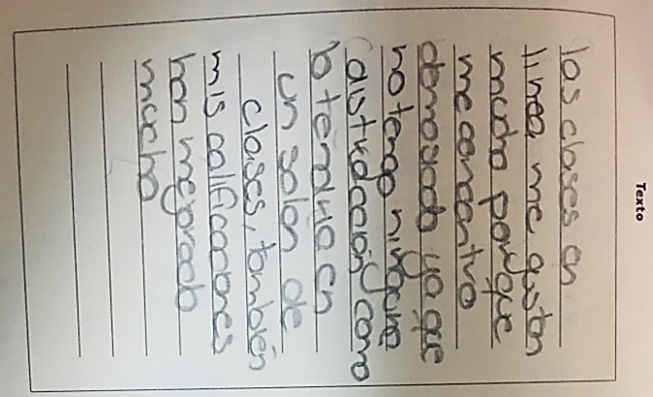 Texto
las clases en
linea me gustan
mucho porque
me concentro
demasiado ya que
no tengo ninguna
distracción como
lo tendria en
un salón de
clases, también
mis calificaciones
han mejorado
mucho